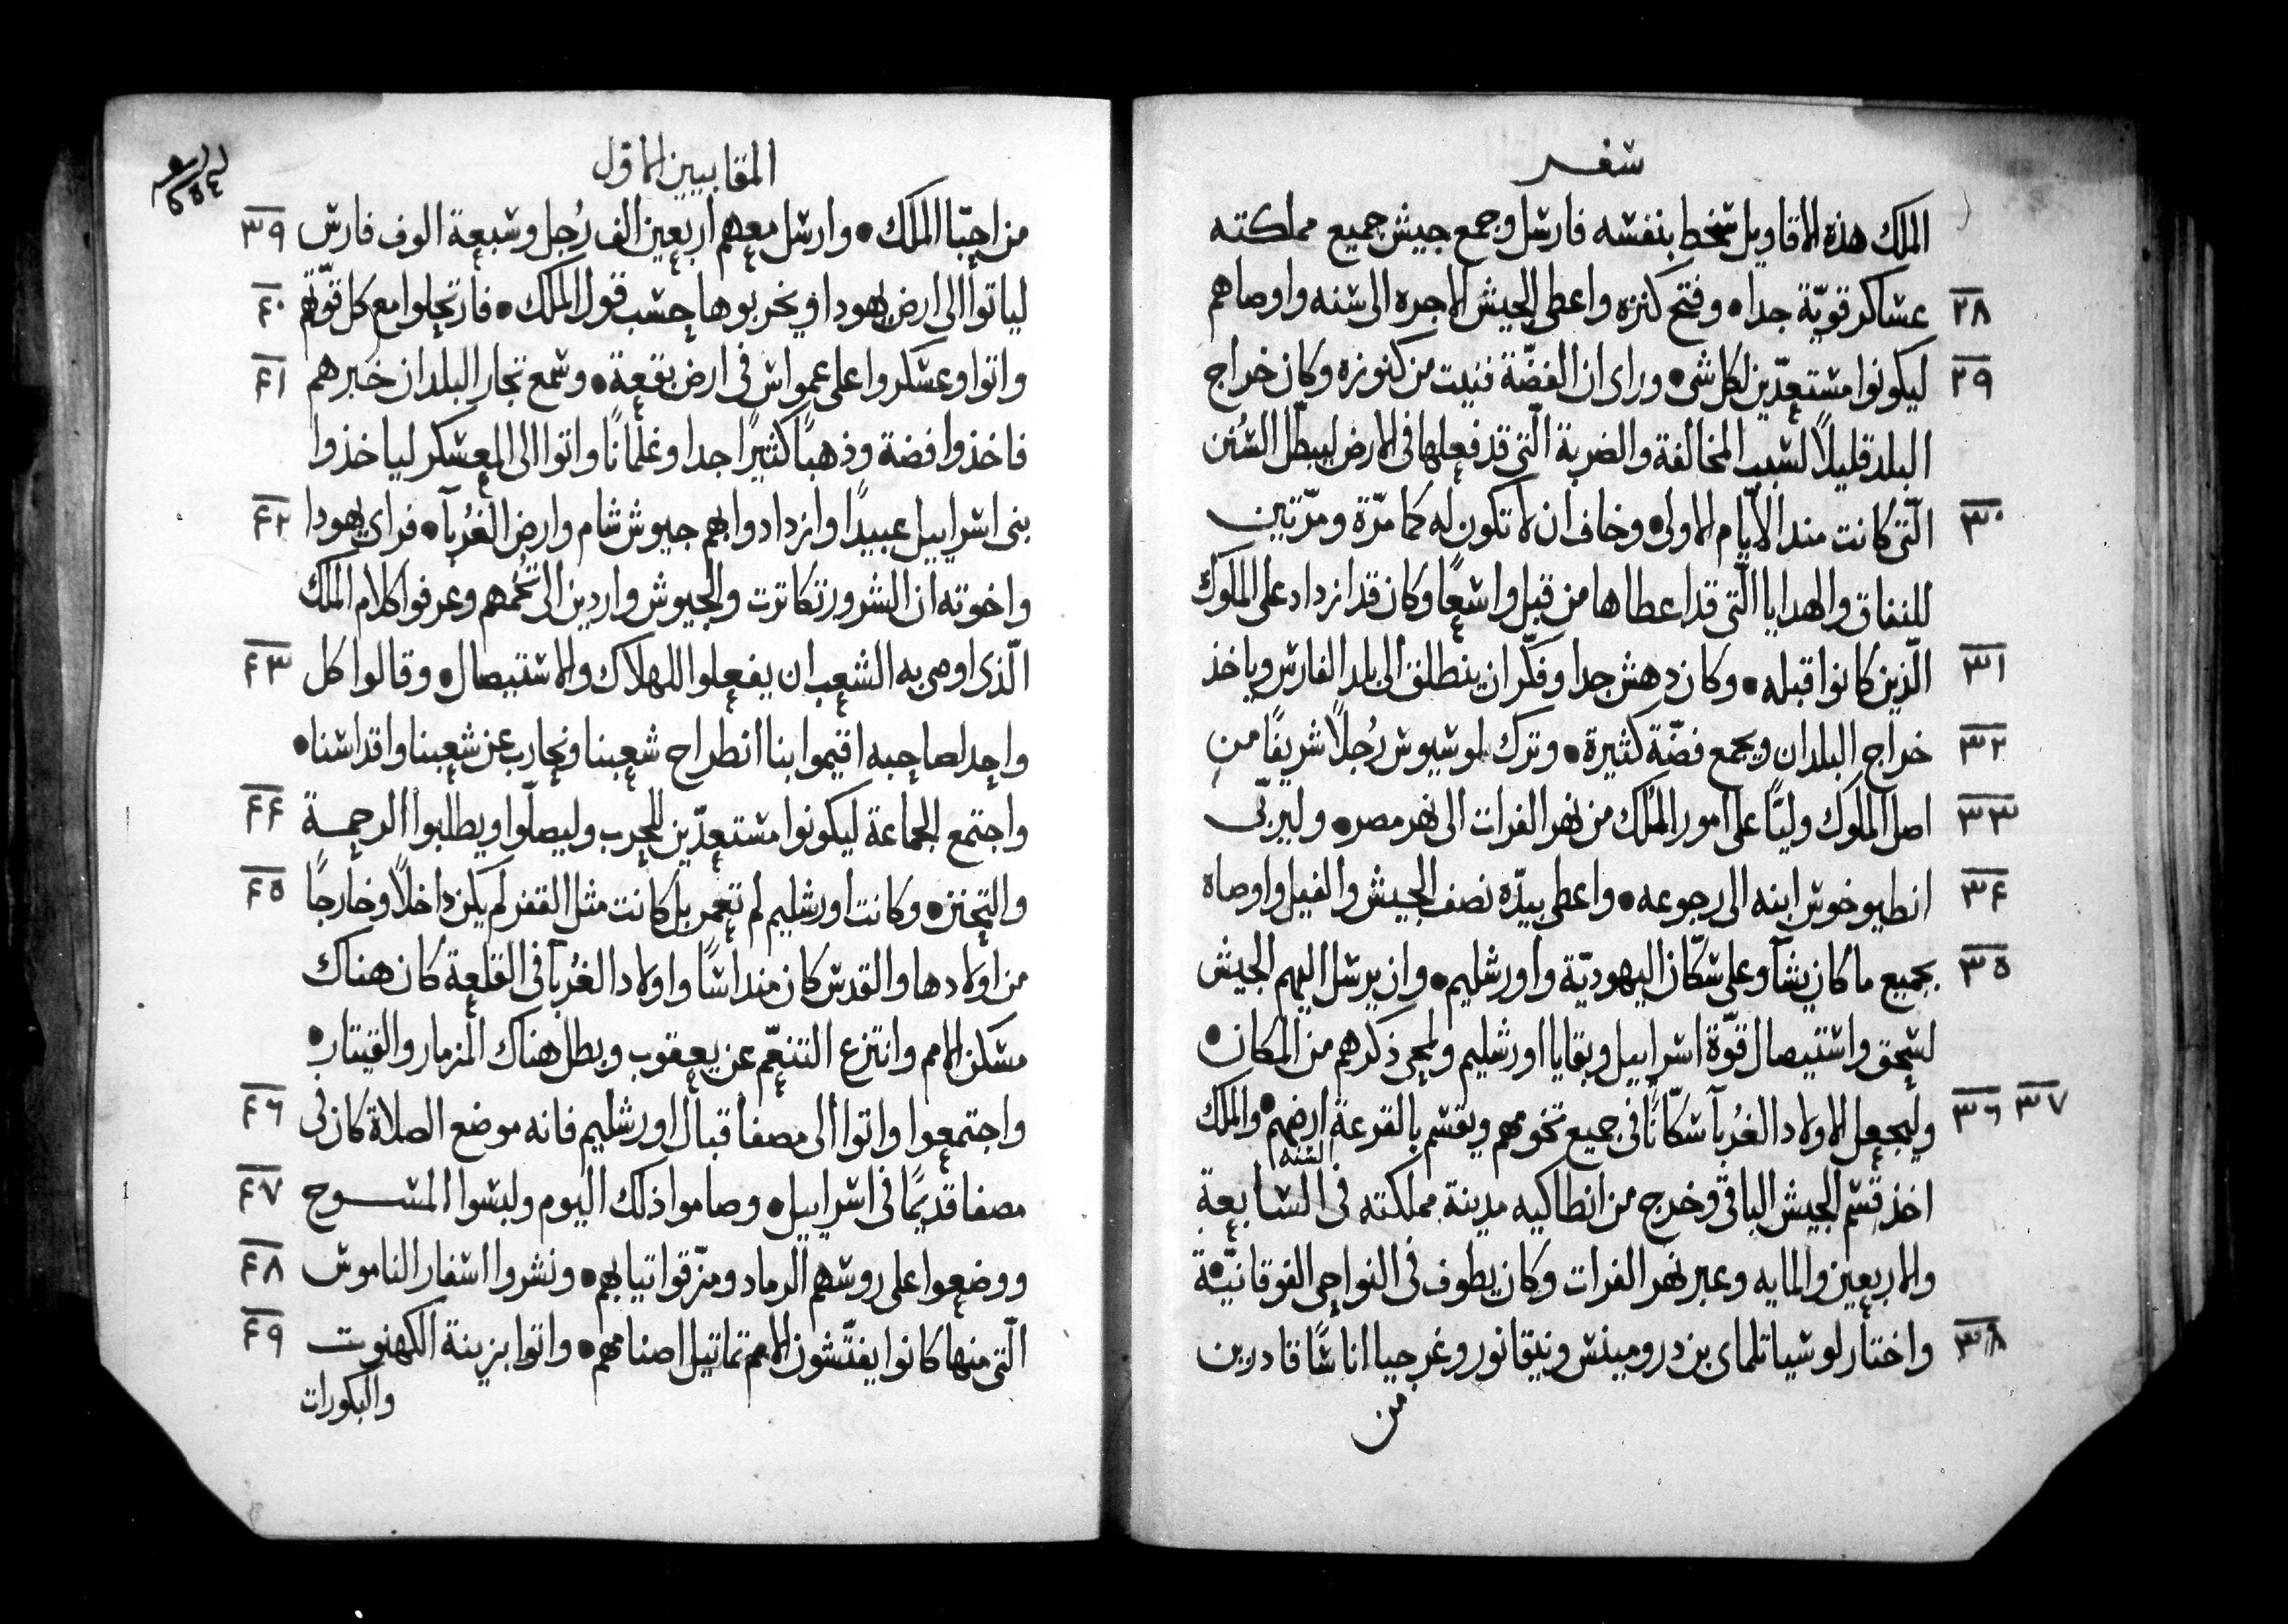 سفر
الملك هذه الاقاويل سخط بنفسه فارسل وجمع جيش جميع مملكته
٢٨ عساكر قويّة جدا • وفتح كنزه واعطى الجيش الاجره الى سنه واوصاهم
٢٩ ليكونوا مستعدّين لكل شي • وراى ان الفضّة فنيت من كنوزه وكان خراج
البلد قليلاً لسبب المخالفة والضربة الّتي قد فعلها في الارض ليبطّل السُنن
٣٠ الّتي كانت مند الايّام الاولى • وخاف ان لا تكون له كما مرّة ومرّتين
للنفاق والهدايا الّتي قد اعطاها من قبل واسعًا وكان قد ازداد على الملوك
٣١ الّذين كانوا قبله • وكان دهش جدا وفكّر ان ينطلق الى بلد الفارس وياخذ
٣٢ خراج البلدان ويجمع فضّة كثيرة • وترك لوسيوس رُجلاً شريفًا من
٣٣ اصل الملوك وليًّا على امور المُلك من نهر الفرات الى نهر مصر • وليربّى
٣٤ انطيوخوس ابنه الى رجوعه • واعطى بيدّه نصف الجيش والفيل واوصاه
٣٥ بجميع ما كان يشآ وعلى سكّان اليهوديّة واورشليم • وان يرسل اليهم الجيش
لسحق واستيصال قوّة اسراييل وبقايا اورشليم ولمحى ذكرهم من المكان •
٣٦ ٣٧ وليجعل الاولاد الغُربآ سكّانًا في جميع تخومهم ويقسم بالقرعة ارضهم • والملك
السنه
اخذ قسم الجيش الباقي وخرج من انطاكيه مدينة مملكته في السابعة
والاربعين والمايه وعبر نهر الفرات وكان يطوف في النواحي الفوقانيّة •
٣٨ واختار لوسيا تلماى بن درومينس ونيقانور وغرجيا اناسًا قادرين
من
المقابيين الاول
٣٩ من احبّا الملك • وارسل معهم اربعين الف رُجل وسبعة الوف فارس
٤٠ لياتوا الى ارض يهودا ويخربوها حسب قول الملك • فارتحلوا مع كل قوّتهم
٤١ واتوا وعسكروا على عمواس في ارض بقعة • وسمع تجار البلدان خبرهم
فاخذوا فضة وذهبًا كثيرًا جدا وغلمانًا واتوا الى المعسكر لياخذوا
٤٢ بني اسراييل عبيدًا وازدادوا بهم جيوش شام وارض الغُربآ • فراى يهودا
واخوته ان الشرور تكاترت والجيوش واردين الى تخمهم وعرفوا كلام الملك
٤٣ الّذي اوصى به الشعب ان يفعلوا للهلاك والاستيصال • وقالوا كل
واحد لصاحبه اقيموا بنا انطراح شعبنا ونحارب عن شعبنا واقداسنا •
٤٤ واجتمع الجماعة ليكونوا مستعدّين للحرب وليصلّوا ويطلبوا الرحمة
٤٥ والتحنن • وكانت اورشليم لم تعمر بل كانت مثل القفر لم يكن داخلاً وخارجًا
من اولادها والقدس كان منداسًا واولاد الغُربآ في القلعة كان هناك
مسكن الامم وانتزع التنعّم عن يعقوب وبطل هناك المزمار والقيتار •
٤٦ واجتمعوا واتوا الى مصفا قبال اورشليم فانه موضع الصلاة كان في
٤٧ مصفا قديمًا في اسراييل • وصاموا ذلك اليوم ولبسوا المسوح
٤٨ ووضعوا على روسهم الرماد ومزّقوا تيابهم • ونشروا اسفار الناموس
٤٩ الّتي منها كانوا يفتّشون الامم تماتيل اصنامهم • واتوا بزينة الكهنوت
والبكورات